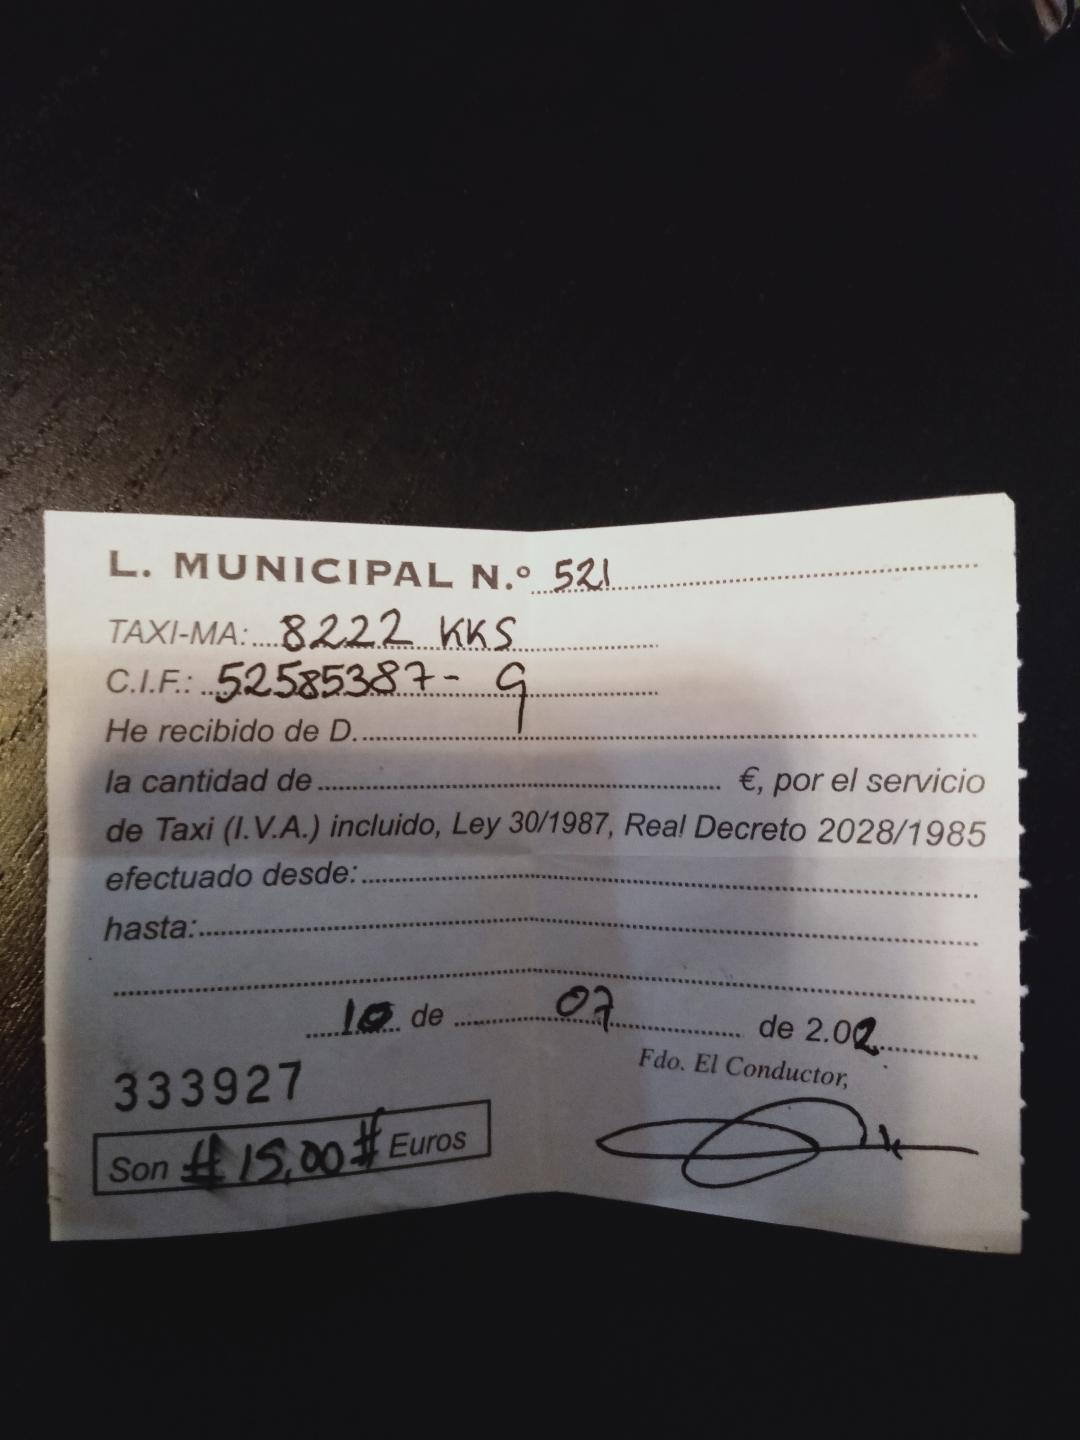 L. MUNICIPAL N.º 521
TAXI-MA: 8222 KKS
C.I.F.: 52585387- G
He recibido de D.
la cantidad de € , por el servicio
de Taxi (I.V.A.) incluido, Ley 30/1987, Real Decreto 2028/1985
efectuado desde:
hasta:
10 de 07 de 2.002
Fdo. El Conductor,
333927
Son # 15,00 # Euros